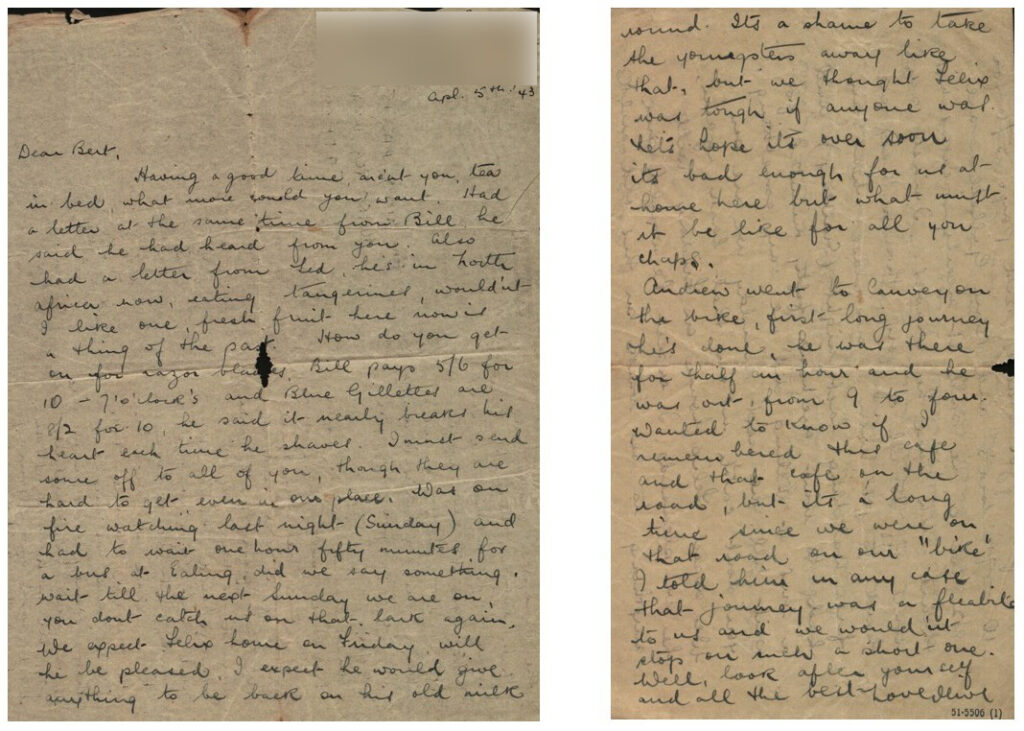 Apl. 5th '43
Dear Bert,
Having a good time, arent you, tea
in bed, what more could you want. Had
a letter at the same time from Bill, he
said he had heard from you. Also
had a letter from Ted, he's in North
africa now, eating tangerines, wouldn't
I like one, fresh fruit here now is
a thing of the past. How do you get
on for razor blades, Bill pays 5/6 for
10 - 7 o'clock's and Blue Gillettes are
2/2 for 10, he said it nearly breaks his
heart each time he shaves. I must send
some off to all of you, though they are
hard to get, even in one place. Was on
fire watching last night (Sunday) and
had to wait one hour fifty minutes for
a bus at Ealing, did we say something,
wait till the next Sunday we are on,
you dont catch us on that lark again.
We expect Felix home on Friday, will
he be pleased, I expect he would give
anything to be back on his old milk
round. Its a shame to take
the youngsters away like
that, but we thought Felix
was tough if anyone was.
Let's hope its over soon
its bad enough for us at
home here but what must
it be like for all you
chaps.
Andrew went to Canvey on
the bike, first long journey
he's done, he was there
for half an hour and he
was out from 9 to four.
Wanted to know if I
remembered this cafe
and that cafe on the
road, but its a long
time since we were on
that road on our "bike"
I told him in any case
that journey was a fleabite
to us and we would'nt
stop on such a short one.
Well, look after yourself
and all the best-Love
51-5506 (1)